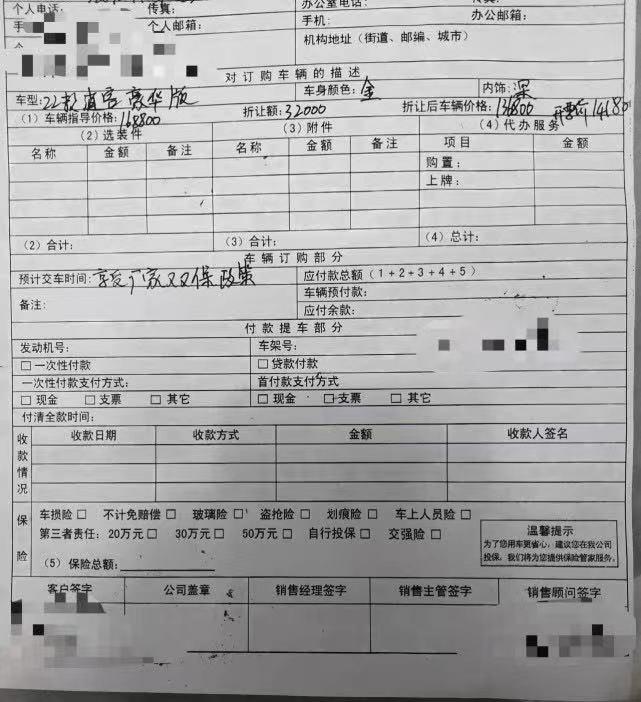 个人电话: 传真: 办公室电话: 传真:
手 个人邮箱: 手机: 办公邮箱:
机构地址（街道、邮编、城市）
对订购车辆的描述
车型:22款 豪华版 车身颜色:金 内饰:深
（1）车辆指导价格:168800 折让额:32000 折让后车辆价格:136800 开票价
（2）选装件 （3）附件 （4）代办服务
名称 金额 备注 名称 金额 备注 项目 金额
购置:
上牌:
（2）合计: （3）合计: （4）总计:
车辆订购部分
预计交车时间:享受厂家双保政策 应付款总额（1+2+3+4+5）
车辆预付款:
备注: 应付余款:
付款提车部分
发动机号: 车架号:
□一次性付款 □贷款付款
一次性付款支付方式: 首付款支付方式
□现金 □支票 □其它 □现金 □支票 □其它
付清全款时间:
收款情况 收款日期 收款方式 金额 收款人签名
保险 车损险□ 不计免赔偿□ 玻璃险□ 盗抢险□ 划痕险□ 车上人员险□
第三者责任: 20万元□ 30万元□ 50万元□ 自行投保□ 交强险□
（5）保险总额:
温馨提示
为了您用车更省心，建议您在我公司
投保，我们将为您提供保险管家服务。
客户签字 公司盖章 销售经理签字 销售主管签字 销售顾问签字